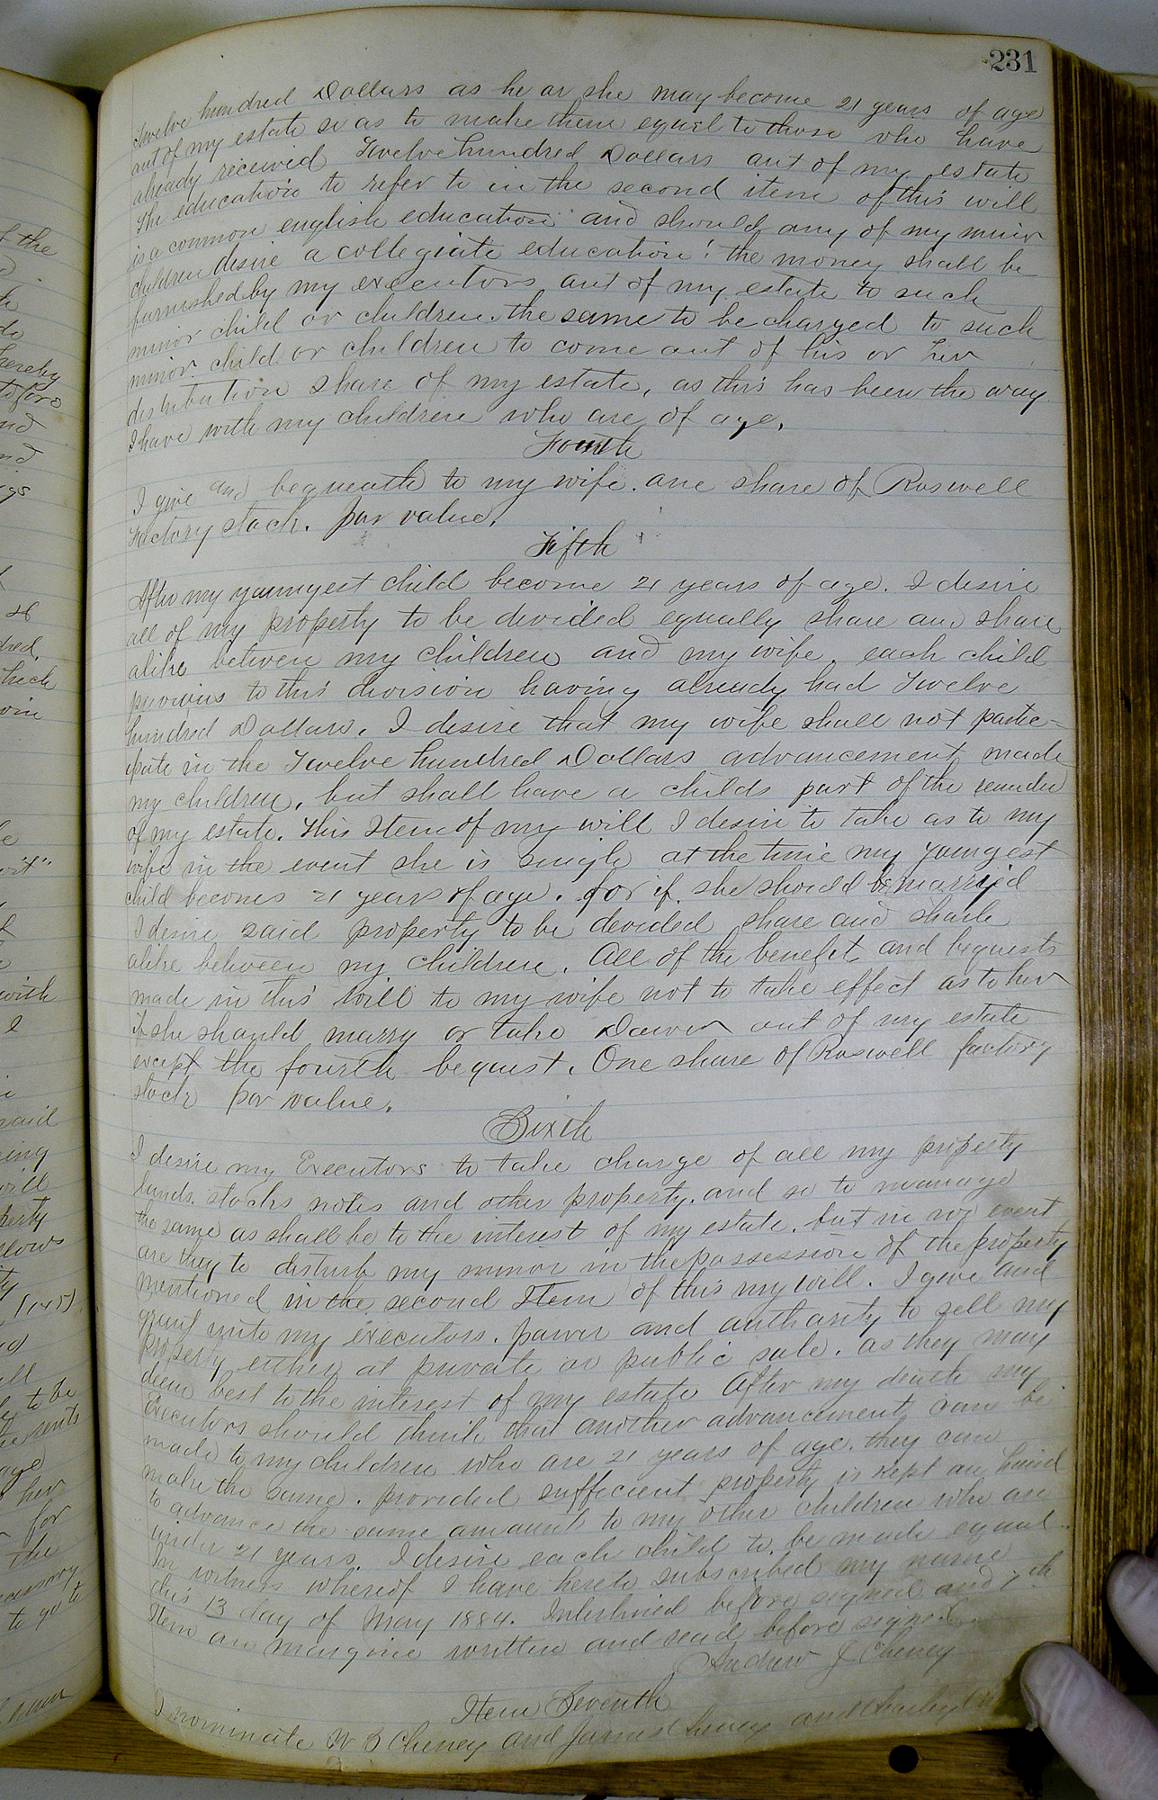 231
Twelve hundred Dollars as he or she may become 21 years of age
out of my estate so as to make them equal to those who have
already received Twelve hundred Dollars out of my estate
The education to refer to in the second item of this will
is a common english education and should any of my minor
children desire a collegiate education! the money shall be
furnished by my executors out of my estate to such
minor child or children. the same to be charged to such
minor child or children to come out of his or her
distribution share of my estate, as this has been the way
I have with my children who are of age.
Fourth
I give and bequeath to my wife. one share of Roswell
Factory stock. par value.
Fifth
After my youngest child become 21 years of age. I desire
all of my property to be devided equally share and share
alike between my children and my wife each child
previous to this division having already had Twelve
hundred Dollars. I desire that my wife shall not partic-
ipate in the Twelve hundred Dollars advancement made
my children, but shall have a childs part of the
of my estate. This Item of my will I desire to take as to my
wife in the event she is single at the time my youngest
child becomes 21 years of age. for if she should be married
I desire said property to be devided share and share
alike between my children. All of the benefit and bequests
made in this will to my wife not to take effect as to her
if she should marry or take Dower out of my estate
except the fourth bequest. One share of Roswell factory
stock par value.
Sixth
I desire my Executors to take charge of all my property
lands. stocks notes and other property. and so to manage
the same as shall be to the interest of my estate. but in no event
are they to disturb my minor in the possession of the property
mentioned in the second Item of this my will. I give and
grant unto my executors. power and authority to sell my
property either at private or public sale. as they may
deem best to the interest of my estate After my death my
Executors should think that another advancement can be
made to my children who are 21 years of age. they can
make the same. provided sufficient property is kept on hand
to advance the same amount to my other children who are
under 21 years. I desire each child to be made equal
In witness whereof I have hereto subscribed my name
this 13 day of May 1884. Interlined before signed and 7th
Item on margine written and read before signed
Andrew J Cheney
Item Seventh
I nominate W B Cheney and James Cheney and